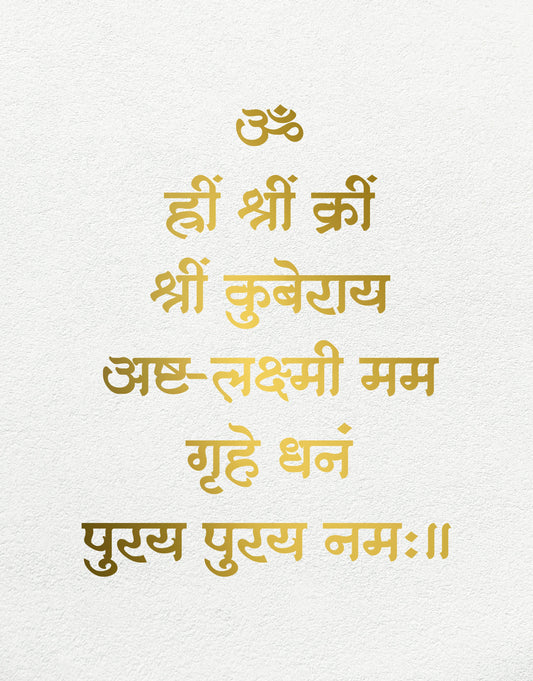 ॐ
ह्रीं श्रीं क्रीं
श्रीं कुबेराय
अष्ट-लक्ष्मी मम
गृहे धनं
पुरय पुरय नमः॥